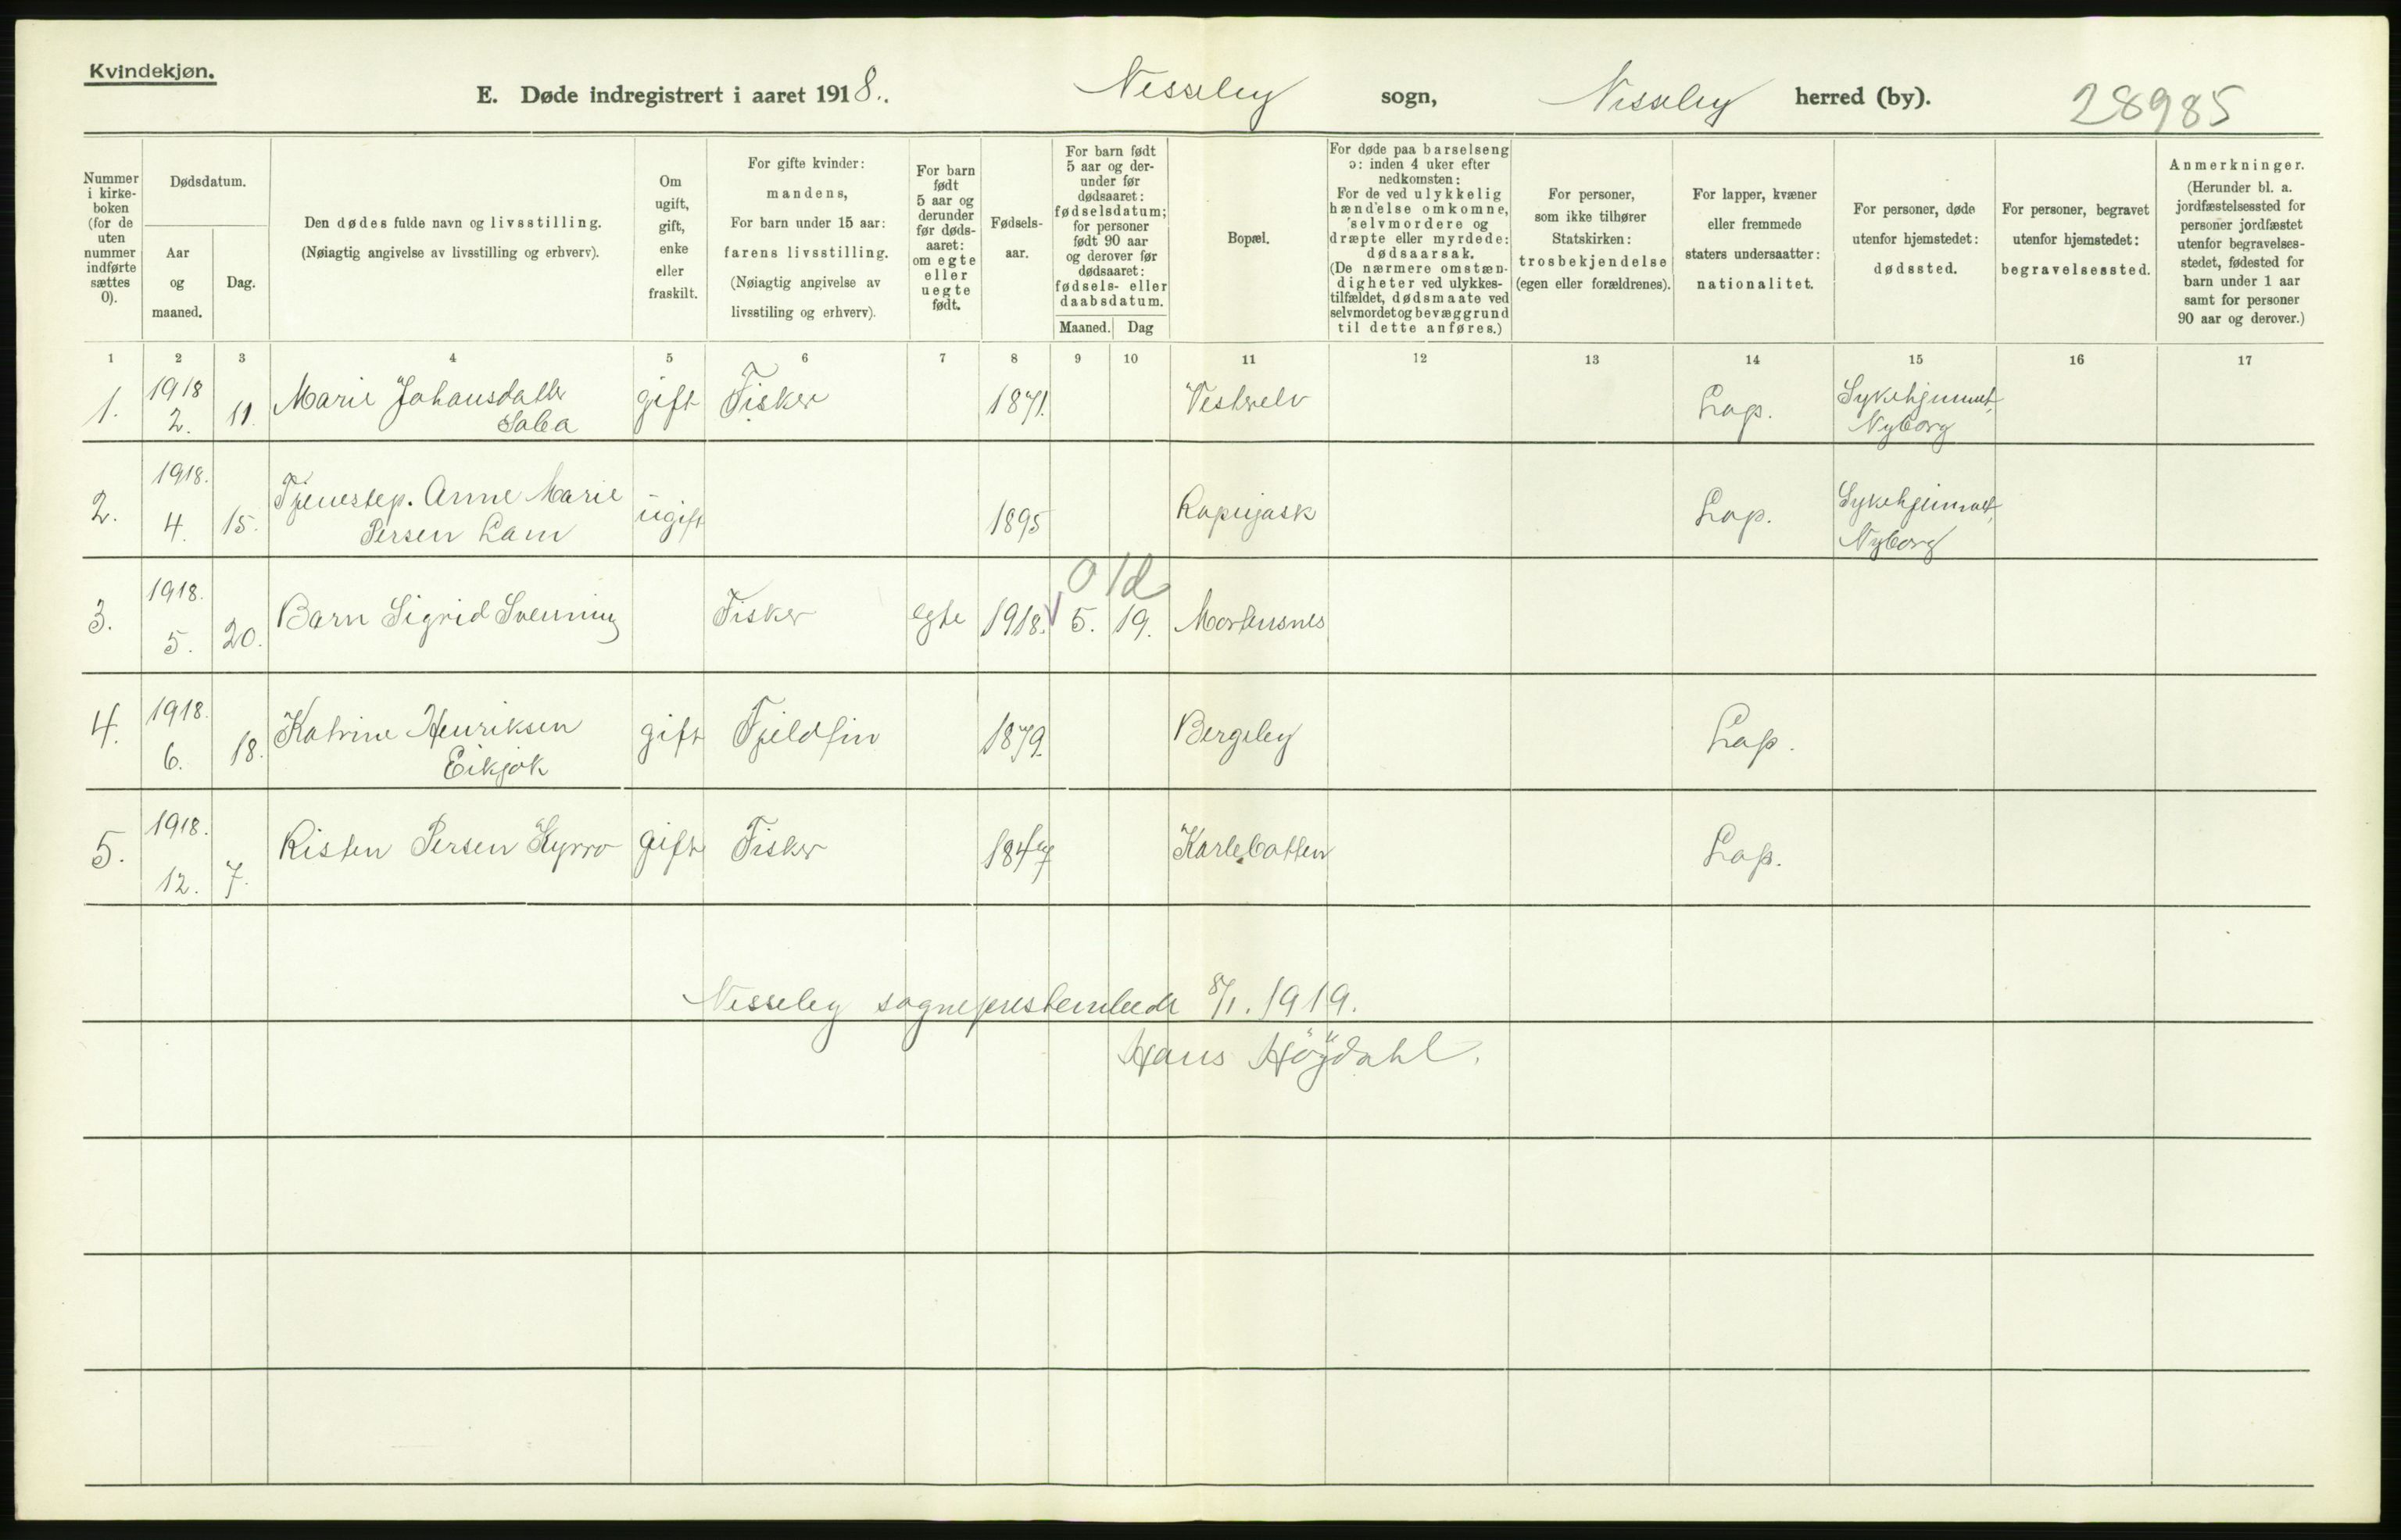 Kvindekjøn.
E. Døde indregistrert i aaret 1918. Nesseby sogn, Nesseby herred (by). 28985
Nummer i kirke-boken (for de uten nummer indførte sættes 0).
Dødsdatum.
Aar og maaned.
Dag.
Den dødes fulde navn og livsstilling.
(Nøiagtig angivelse av livsstilling og erhverv).
Om ugift, gift, enke eller fraskilt.
For gifte kvinder:
mandens,
For barn under 15 aar:
farens livsstilling.
(Nøiagtig angivelse av
livsstiling og erhverv).
For barn født 5 aar og derunder før døds-aaret: om egte eller uegte født.
Fødsels-aar.
For barn født 5 aar og der-under før dødsaaret: fødselsdatum; for personer født 90 aar og derover før dødsaaret: fødsels- eller daabsdatum.
Maaned. Dag
Bopæl.
For døde paa barselseng
ɔ: inden 4 uker efter
nedkomsten:
For de ved ulykkelig
hændelse omkomne,
selvmordere og
dræpte eller myrdede:
dødsaarsak.
(De nærmere omstæn-
digheter ved ulykkes-
tilfældet, dødsmaate ved
selvmordet og bevæggrund
til dette anføres.)
For personer,
som ikke tilhører
Statskirken:
trosbekjendelse
(egen eller forældrenes).
For lapper, kvæner
eller fremmede
staters undersaatter:
nationalitet.
For personer, døde
utenfor hjemstedet:
dødssted.
For personer, begravet
utenfor hjemstedet:
begravelsessted.
Anmerkninger.
(Herunder bl. a.
jordfæstelsessted for
personer jordfæstet
utenfor begravelses-
stedet, fødested for
barn under 1 aar
samt for personer
90 aar og derover.)
1 2 3 4 5 6 7 8 9 10 11 12 13 14 15 16 17
1. 1918 2. 11. Marie Johansdatter Saba gift Fisker 1871. Vesterelv Lap. Sykehjemmet, Nyborg
2. 1918. 4. 15. Tjenestep. Anne Marie Persen Lam ugift 1895 Lap. Sykehjemmet, Nyborg
0 1d
3. 1918. 5. 20. Barn Sigrid Svenning Fisker egte 1918. 5. 19. Mortensnes
4. 1918. 6. 18. Katrine Henriksen Eikjok gift Fjeldfin 1879. Bergeby Lap.
5. 1918. 12. 7. Risten Persen Kyrrö gift Fisker 1847 Karlebotten Lap.
Nesseby sogneprestembede 8/1. 1919.
Hans Höydahl.